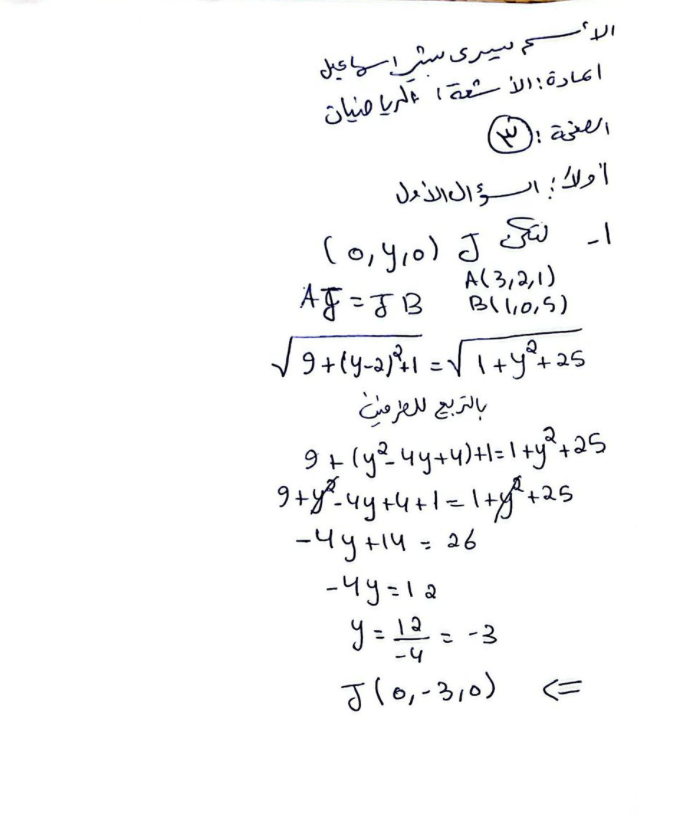 الأسم يسرى بشر اسماعيل
المادة: الأشعة / الرياضيات
الصفحة: ٣
أولاً: السؤال الأول
1- لتكن J (0,y,0)
A(3,2,1)
AJ = JB B(1,0,5)
√9+(y-2)²+1 = √1+y²+25
بالتربيع للطرفين
9+(y²-4y+4)+1=1+y²+25
9+y²-4y+4+1=1+y²+25
-4y+14 = 26
-4y=12
y = 12/-4 = -3
J(0,-3,0) <=